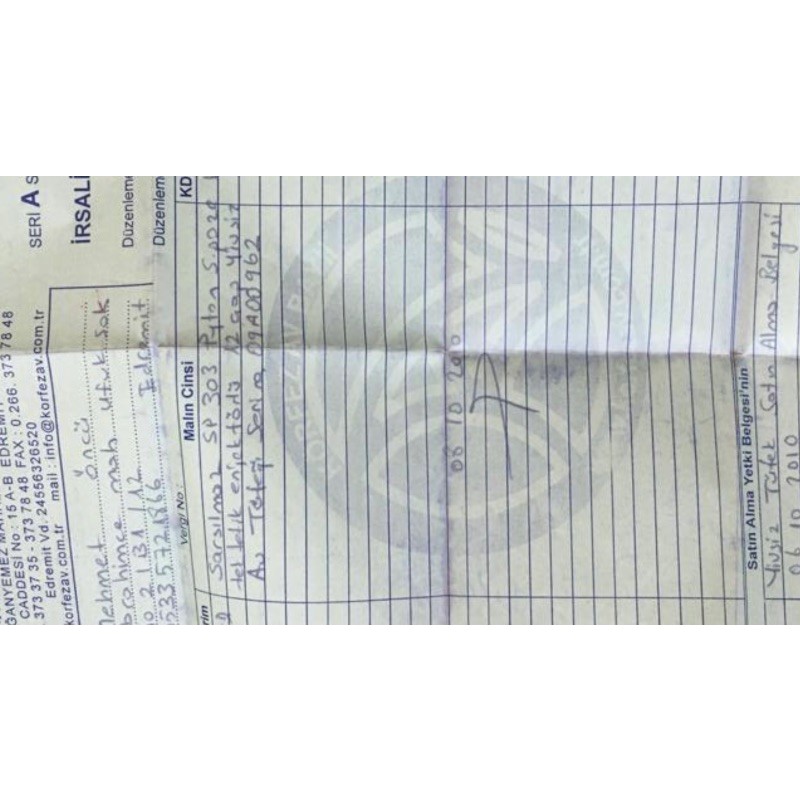 GANYEMEZ MAH. EDREMİT
CADDESİ No : 15 A-B
373 37 35 - 373 78 48 FAX : 0.266. 373 78 48
Edremit Vd. 24556326520
korfezav.com.tr mail : info@korfezav.com.tr
SERİ A S
İRSALİ
Düzenleme
Düzenlem
Mehmet Öncü
İbrahimce mah ufuk sok
no 2 1B1 /12 Edremit
0533 572 1866
Vergi No :
rim Malın Cinsi KD
Sarsılmaz SP 303 Pylon S.poze
tek tetik enjektörlü 12 çap Yivsiz
Av Tüfeği Seri no 09A00962
06 10 2010
KÖRFEZ AV
Satın Alma Yetki Belgesi'nin
Yivsiz Tüfek Satın Alma Belgesi
06.10.2010